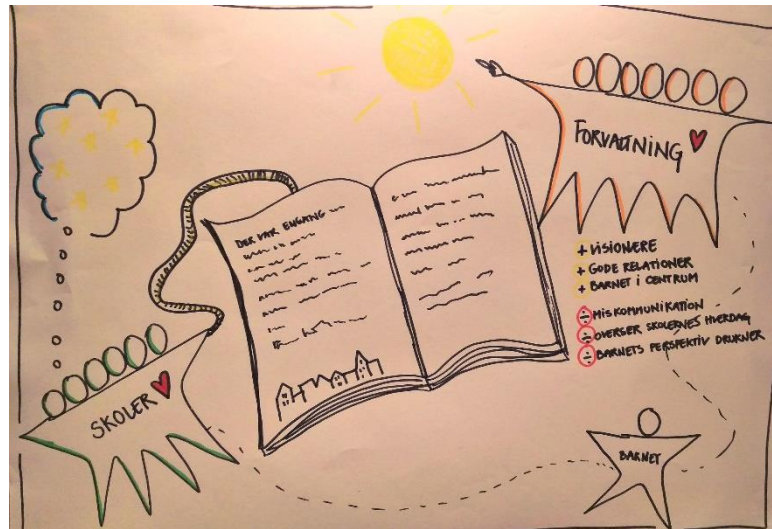 FORVALTNING
DER VAR ENGANG
+ VISIONERE
+ GODE RELATIONER
+ BARNET I CENTRUM
÷ MISKOMMUNIKATION
÷ OVERSER SKOLERNES HVERDAG
÷ BARNETS PERSPEKTIV DRUKNER
SKOLER
BARNET